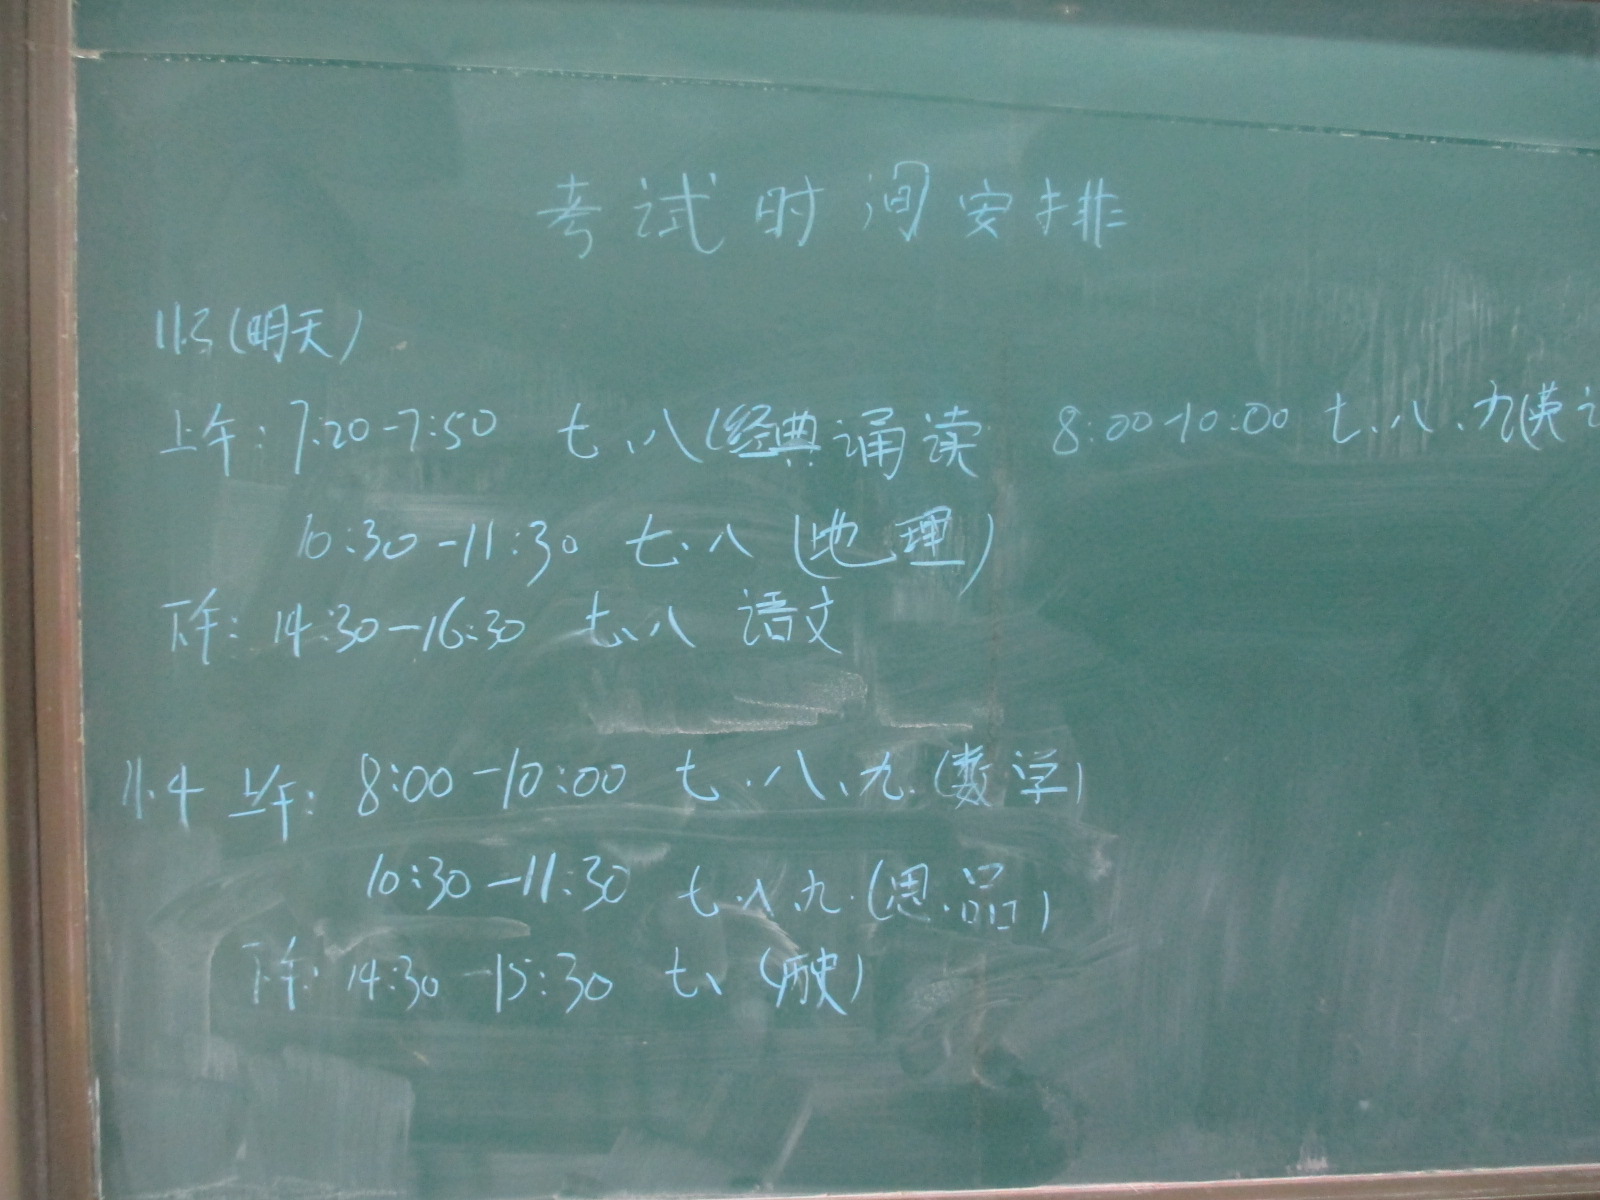 考试时间安排
11.3(明天)
上午: 7:20-7:50 七、八(经典诵读 8:00-10:00 七、八、九(英
10:30-11:30 七、八 (地理)
下午: 14:30-16:30 七、八 语文
11.4 上午: 8:00-10:00 七、八、九(数学)
10:30-11:30 七、八、九(思品)
下午: 14:30-15:30 七、(历史)